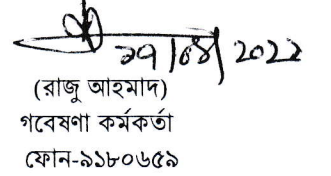 ২৭/০৪/২০২২
(রাজু আহমাদ)
গবেষণা কর্মকর্তা
ফোন-৯১৮০৬৫৯